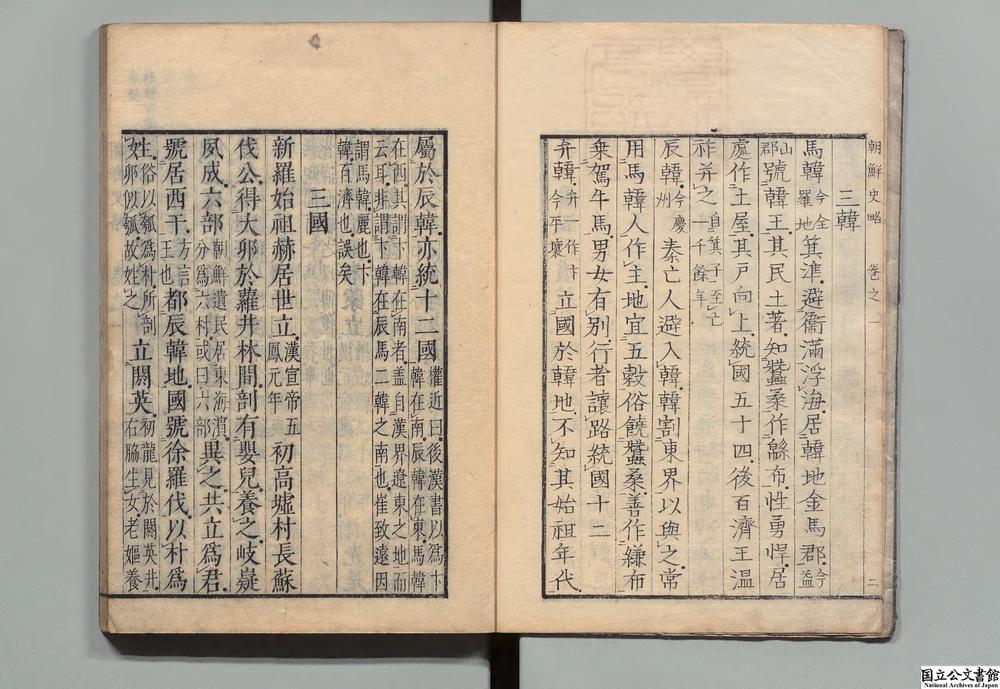 朝鮮史略 卷之一 二
三韓
馬韓今全羅地箕準避衛滿浮海居韓地金馬郡今益
山郡號韓王其民土著知蠶桑作緜布性勇悍居
處作土屋其戶向上統國五十四後百濟王溫
祚并之自箕子至亡一千餘年
辰韓今慶州秦亡人避入韓韓割東界以與之常
用馬韓人作主地宜五穀俗饒蠶桑善作縑布
乘駕牛馬男女有別行者讓路統國十二
弁韓弁一作卞今平壤立國於韓地不知其始祖年代
屬於辰韓亦統十二國權近曰後漢書以爲卞韓在南辰韓在東馬韓
在西其謂卞韓在南者盖自漢界遼東之地而云耳非謂卞韓在辰馬二韓之南也崔致遠因
謂馬韓麗也卞韓百濟也誤矣
三國
新羅始祖赫居世立漢宣帝五鳳元年初高墟村長蘇
伐公得大卵於蘿井林間剖有嬰兒養之岐嶷
夙成六部朝鮮遺民居東海濵分爲六村或曰六部異之共立爲君
號居西干方言王也都辰韓地國號徐羅伐以朴爲
姓俗以瓠爲朴所剖卵似瓠故姓之立閼英初龍見於閼英井右脇生女老嫗養
国立公文書館
National Archives of Japan